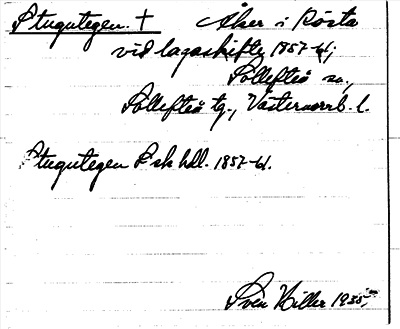 Stugutegen. † Åker i Rösta
vid lagaskifte 1857-61;
Sollefteå sn.,
Sollefteå tg., Västernorrl. l.
Stugutegen Lsk hdl. 1857-61.
Sven Hiller 1935.